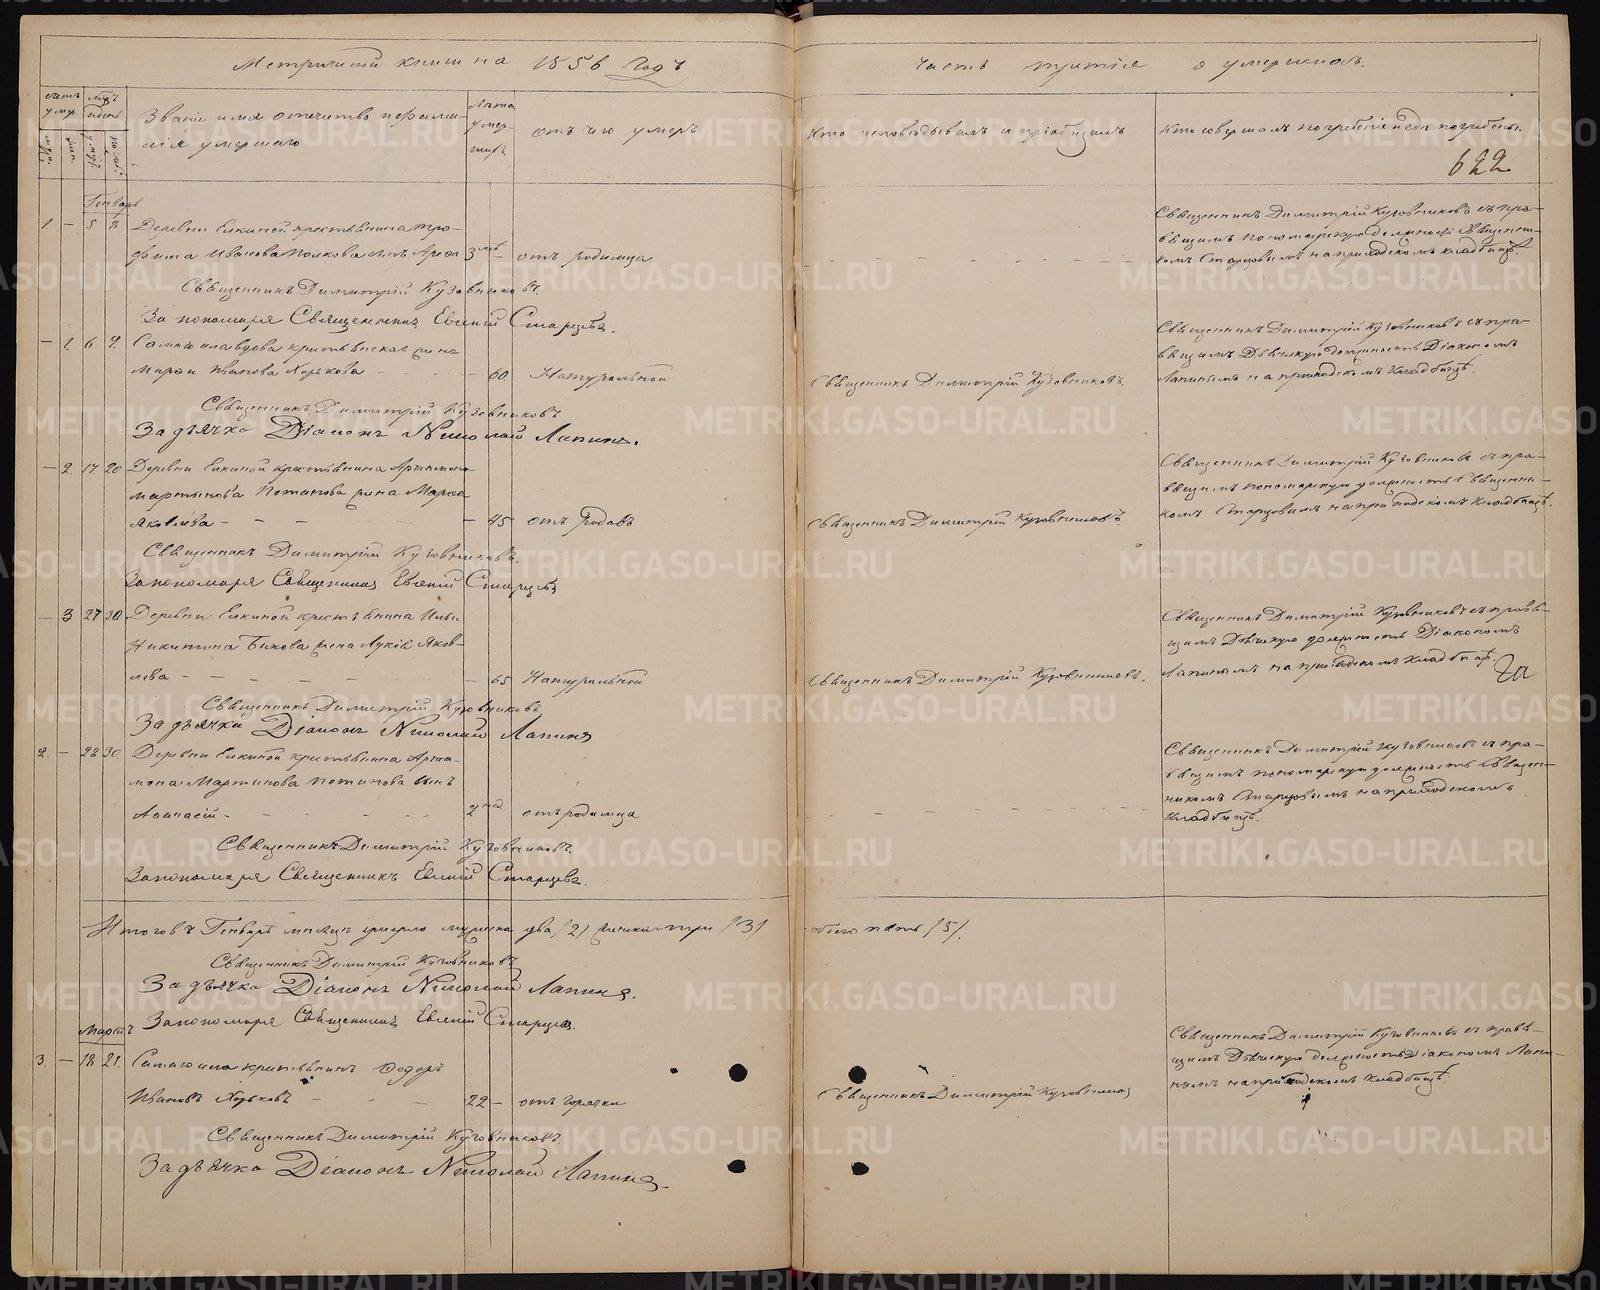 Метрической книги на 1856 Годъ
Часть третія о умершихъ.
Счетъ умер.
муж.
жен.
умер.
погр.
Званіе имя отчество и фамилія умершаго
Лѣта умершихъ
отъ чего умеръ
Кто исповѣдывалъ и пріобщалъ
Кто совершалъ погребеніе и гдѣ погребены.
622
Генварь
1 – 5 8 Деревни Елкиной крестьянина Тро-
фима Иванова сынъ 3 отъ родимца
Священникъ Димитрій Кузовниковъ съ пра-
вящимъ пономарскую должность Священни-
комъ Старцовымъ на приходскомъ кладбищѣ.
Священникъ Димитрій Кузовниковъ.
За пономаря Священникъ Евгеній Старцевъ.
– 1. 6 9. вдова крестьянская жена
Иванова Хорькова – 60 Натуральной
Священникъ Димитрій Кузовниковъ.
Священникъ Димитрій Кузовниковъ съ пра-
вящимъ Дьячкую должность Діакономъ
Лапинымъ на приходскомъ кладбищѣ.
Священникъ Димитрій Кузовниковъ
За дьячка Діаконъ Николай Лапинъ.
– 2. 17 20 Деревни Елкиной крестьянина Артамона
Мартынова Потапова жена Марфа
Яковлева – 45 отъ Родовъ
Священникъ Димитрій Кузовниковъ
Священникъ Димитрій Кузовниковъ съ пра-
вящимъ пономарскую должность Священни-
комъ Старцовымъ на приходскомъ кладбищѣ.
Священникъ Димитрій Кузовниковъ.
За пономаря Священникъ Евгеній Старцевъ
– 3 27 30 Деревни Елкиной крестьянина
Никитина Быкова жена Лукія Яков-
лева – 65 Натуральной
Священникъ Димитрій Кузовниковъ.
Священникъ Димитрій Кузовниковъ съ правя-
щимъ Дьячкую должность Діакономъ
Лапинымъ на приходскомъ кладбищѣ.
Священникъ Димитрій Кузовниковъ
За дьячка Діаконъ Николай Лапинъ
2. – 28 30. Деревни Елкиной крестьянина Арта-
мона Мартынова Потапова сынъ
Афанасій – 2 отъ родимца
Священникъ Димитрій Кузовниковъ съ пра-
вящимъ пономарскую должность Священ-
никомъ Старцовымъ на приходскомъ
кладбищѣ.
Священникъ Димитрій Кузовниковъ.
За пономаря Священникъ Евгеній Старцевъ.
Итого въ Генварѣ мѣсяцѣ умерло мужеска два /2/ женска три /3/
обоего пять /5/.
Священникъ Димитрій Кузовниковъ
За дьячка Діаконъ Николай Лапинъ.
За пономаря Священникъ Евгеній Старцевъ.
Мартъ
3. – 18 21. крестьянинъ Федоръ
Ивановъ Хорьковъ – 22 – отъ горячки
Священникъ Димитрій Кузовниковъ
Священникъ Димитрій Кузовниковъ съ правя-
щимъ Дьячкую должность Діакономъ Лапи-
нымъ на приходскомъ кладбищѣ.
Священникъ Димитрій Кузовниковъ
За дьячка Діаконъ Николай Лапинъ.
METRIKI.GASO-URAL.RU